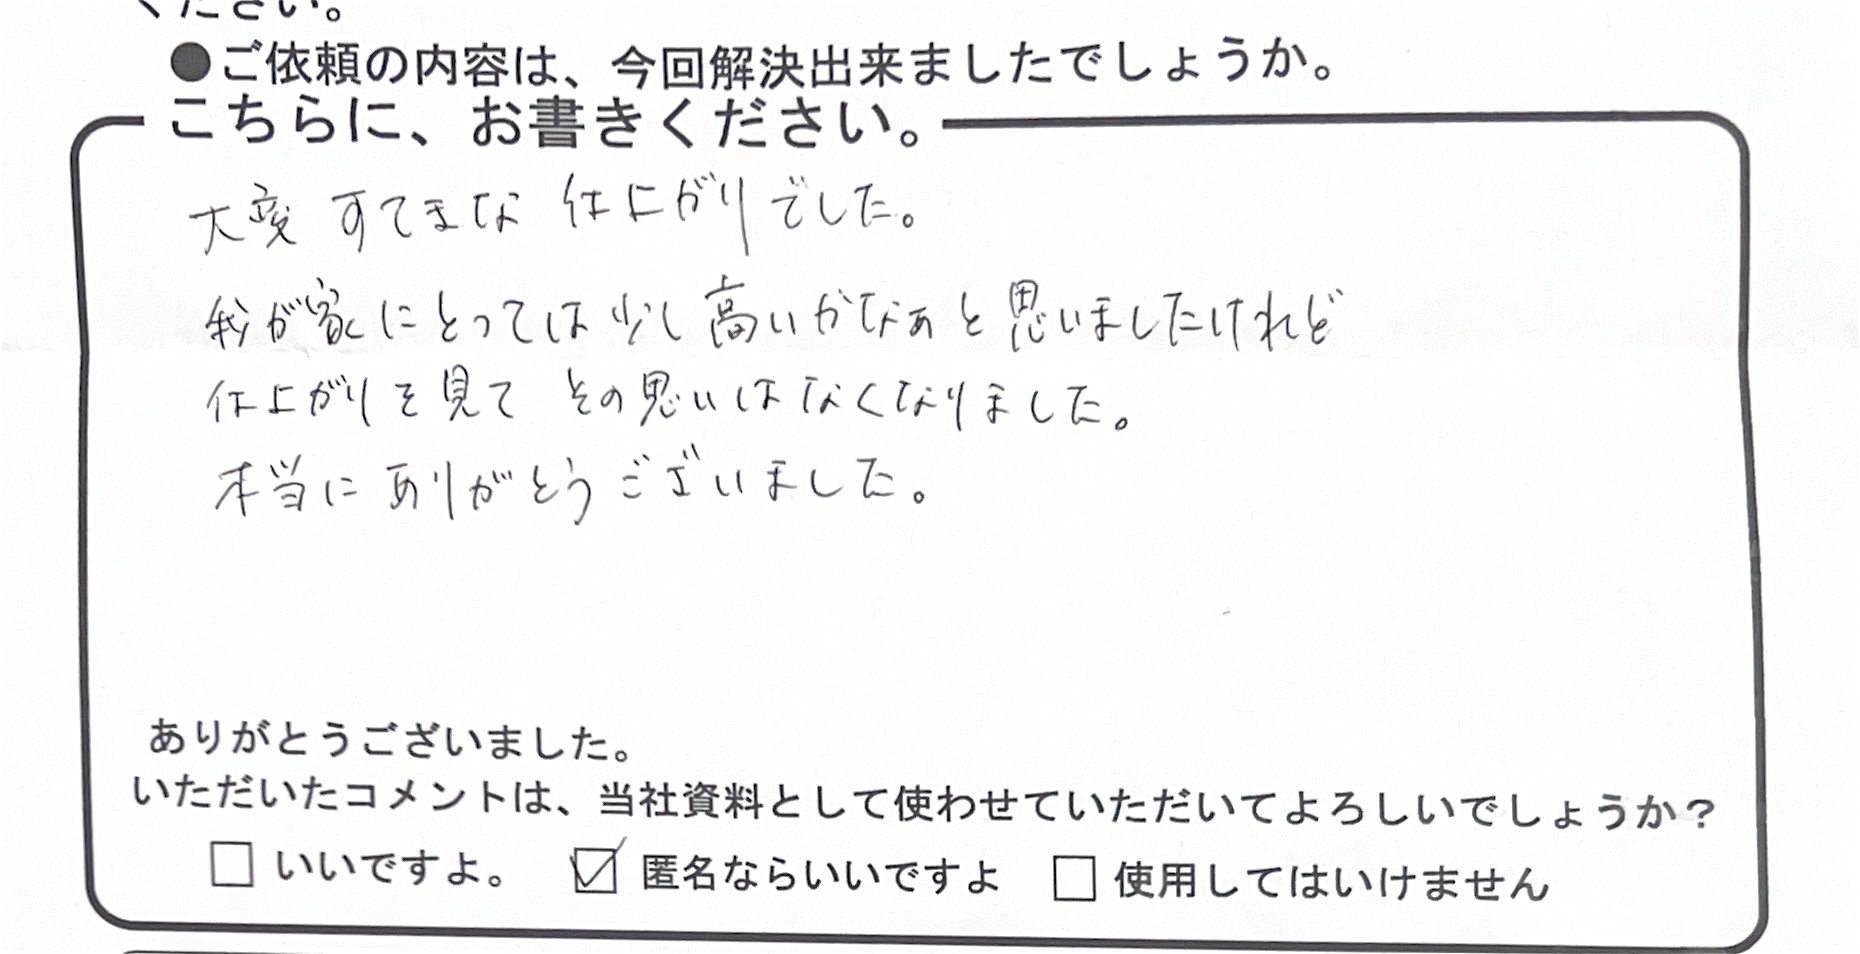 ください。
●ご依頼の内容は、今回解決出来ましたでしょうか。
こちらに、お書きください。
大変 すてきな 仕上がりでした。
我が家にとっては少し高いかなぁと思いましたけれど
仕上がりを見て その思いはなくなりました。
本当に ありがとうございました。
ありがとうございました。
いただいたコメントは、当社資料として使わせていただいてよろしいでしょうか？
□ いいですよ。 ☑ 匿名ならいいですよ □ 使用してはいけません